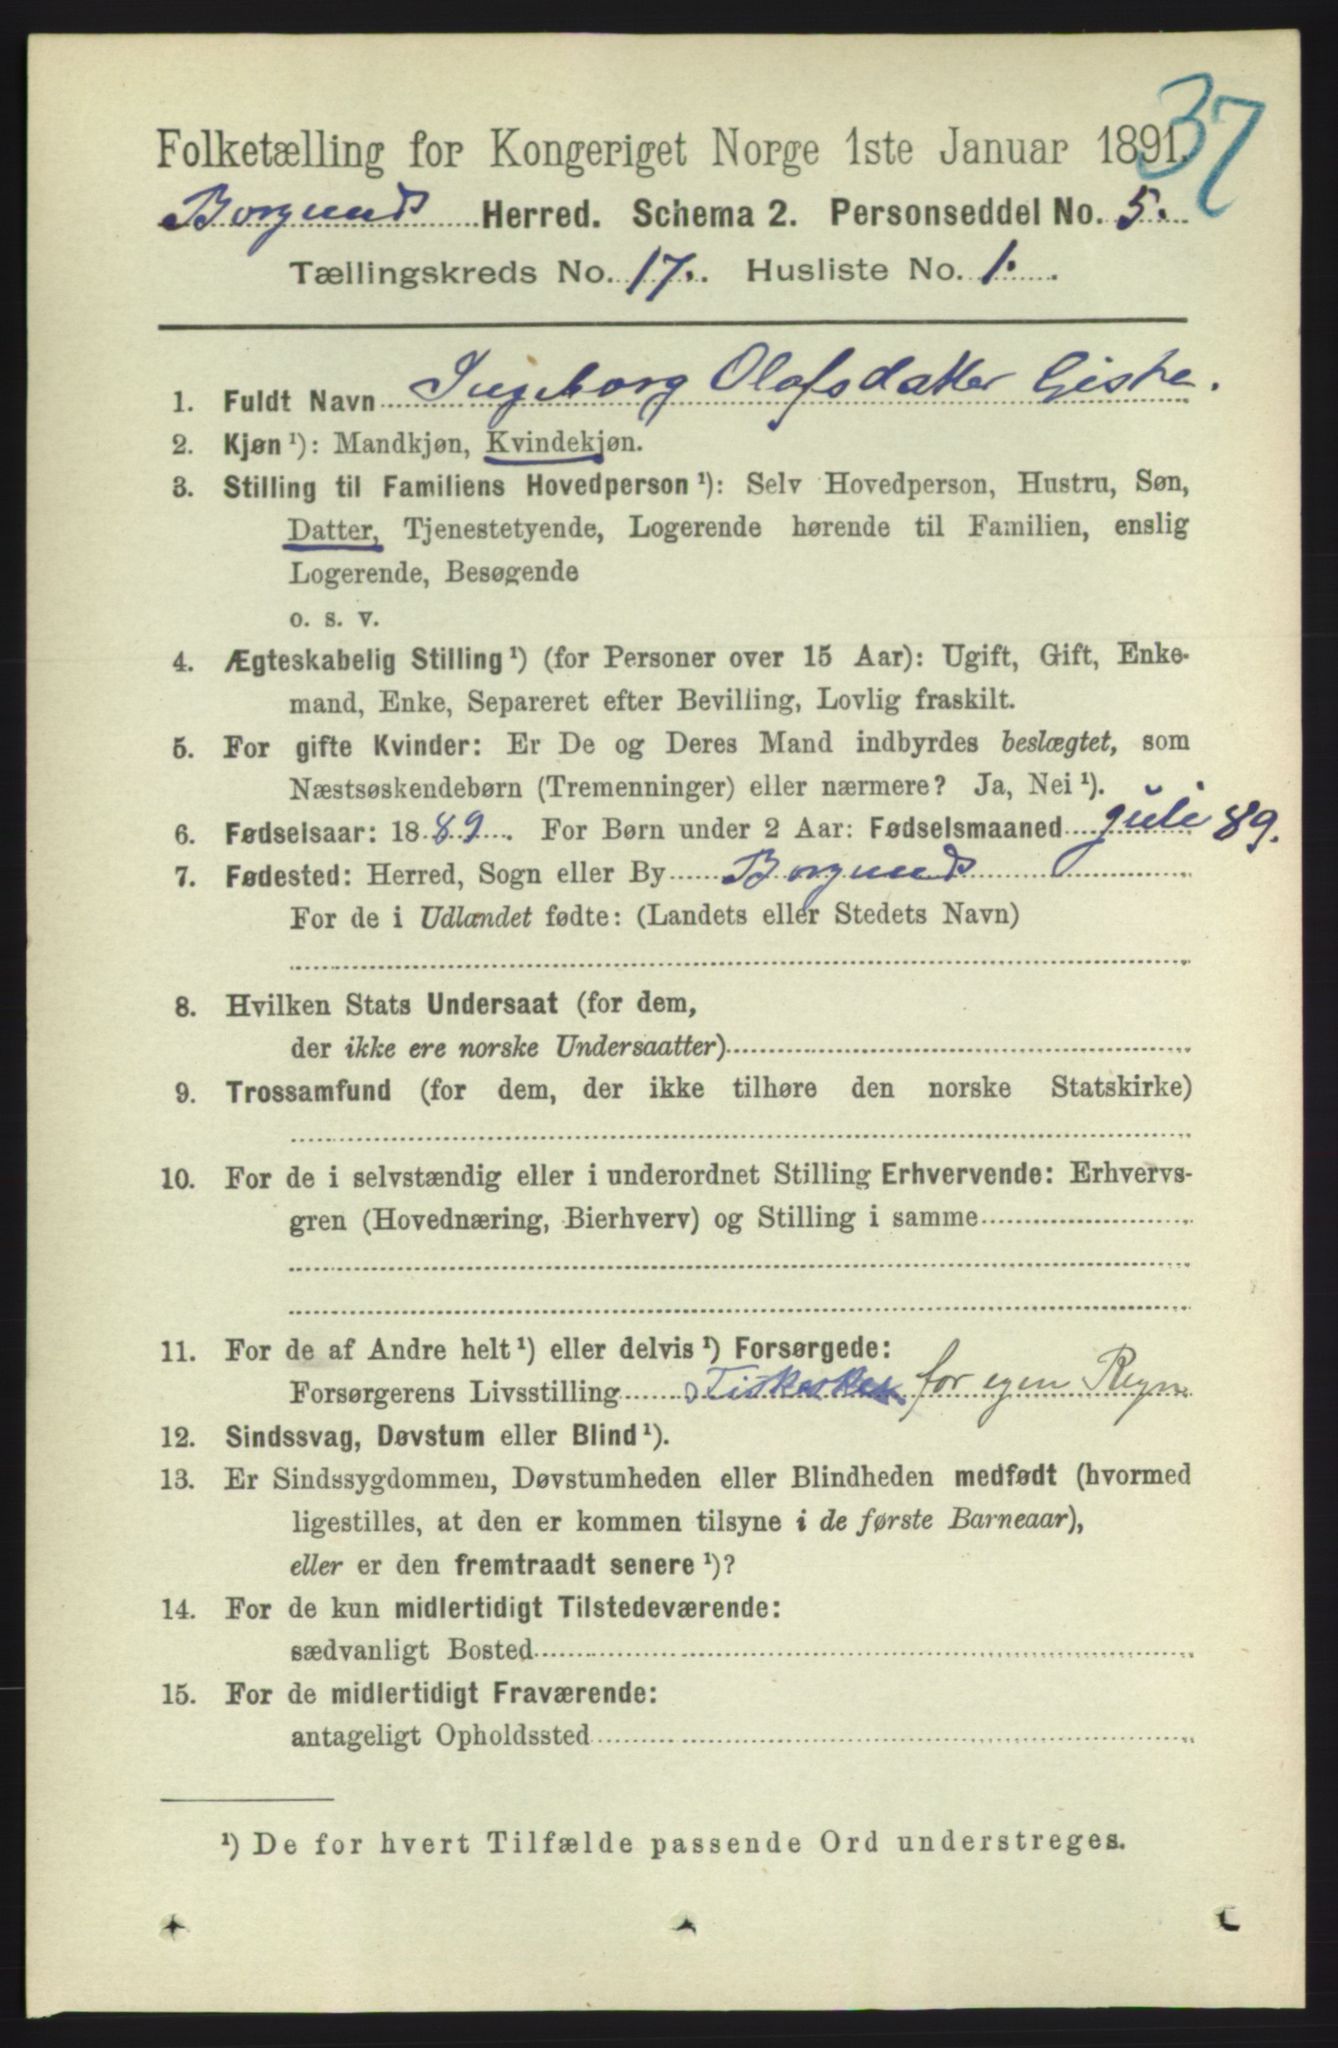 37
Folketælling for Kongeriget Norge 1ste Januar 1891.
Borgunds Herred. Schema 2. Personseddel No. 5.
Tællingskreds No. 17. Husliste No. 1.
1. Fuldt Navn Ingeborg Olafsdatter Giske.
2. Kjøn ¹): Mandkjøn, Kvindekjøn.
3. Stilling til Familiens Hovedperson ¹): Selv Hovedperson, Hustru, Søn,
Datter, Tjenestetyende, Logerende hørende til Familien, enslig
Logerende, Besøgende
o. s. v.
4. Ægteskabelig Stilling ¹) (for Personer over 15 Aar): Ugift, Gift, Enke-
mand, Enke, Separeret efter Bevilling, Lovlig fraskilt.
5. For gifte Kvinder: Er De og Deres Mand indbyrdes beslægtet, som
Næstsøskendebørn (Tremenninger) eller nærmere? Ja, Nei ¹).
6. Fødselsaar: 1889. For Børn under 2 Aar: Fødselsmaaned juli 89.
7. Fødested: Herred, Sogn eller By Borgunds
For de i Udlandet fødte: (Landets eller Stedets Navn)
8. Hvilken Stats Undersaat (for dem,
der ikke ere norske Undersaatter)
9. Trossamfund (for dem, der ikke tilhøre den norske Statskirke)
10. For de i selvstændig eller i underordnet Stilling Erhvervende: Erhvervs-
gren (Hovednæring, Bierhverv) og Stilling i samme
11. For de af Andre helt ¹) eller delvis ¹) Forsørgede:
Forsørgerens Livsstilling for egen Regn
12. Sindssvag, Døvstum eller Blind ¹).
13. Er Sindssygdommen, Døvstumheden eller Blindheden medfødt (hvormed
ligestilles, at den er kommen tilsyne i de første Barneaar),
eller er den fremtraadt senere ¹)?
14. For de kun midlertidigt Tilstedeværende:
sædvanligt Bosted
15. For de midlertidigt Fraværende:
antageligt Opholdssted
¹) De for hvert Tilfælde passende Ord understreges.